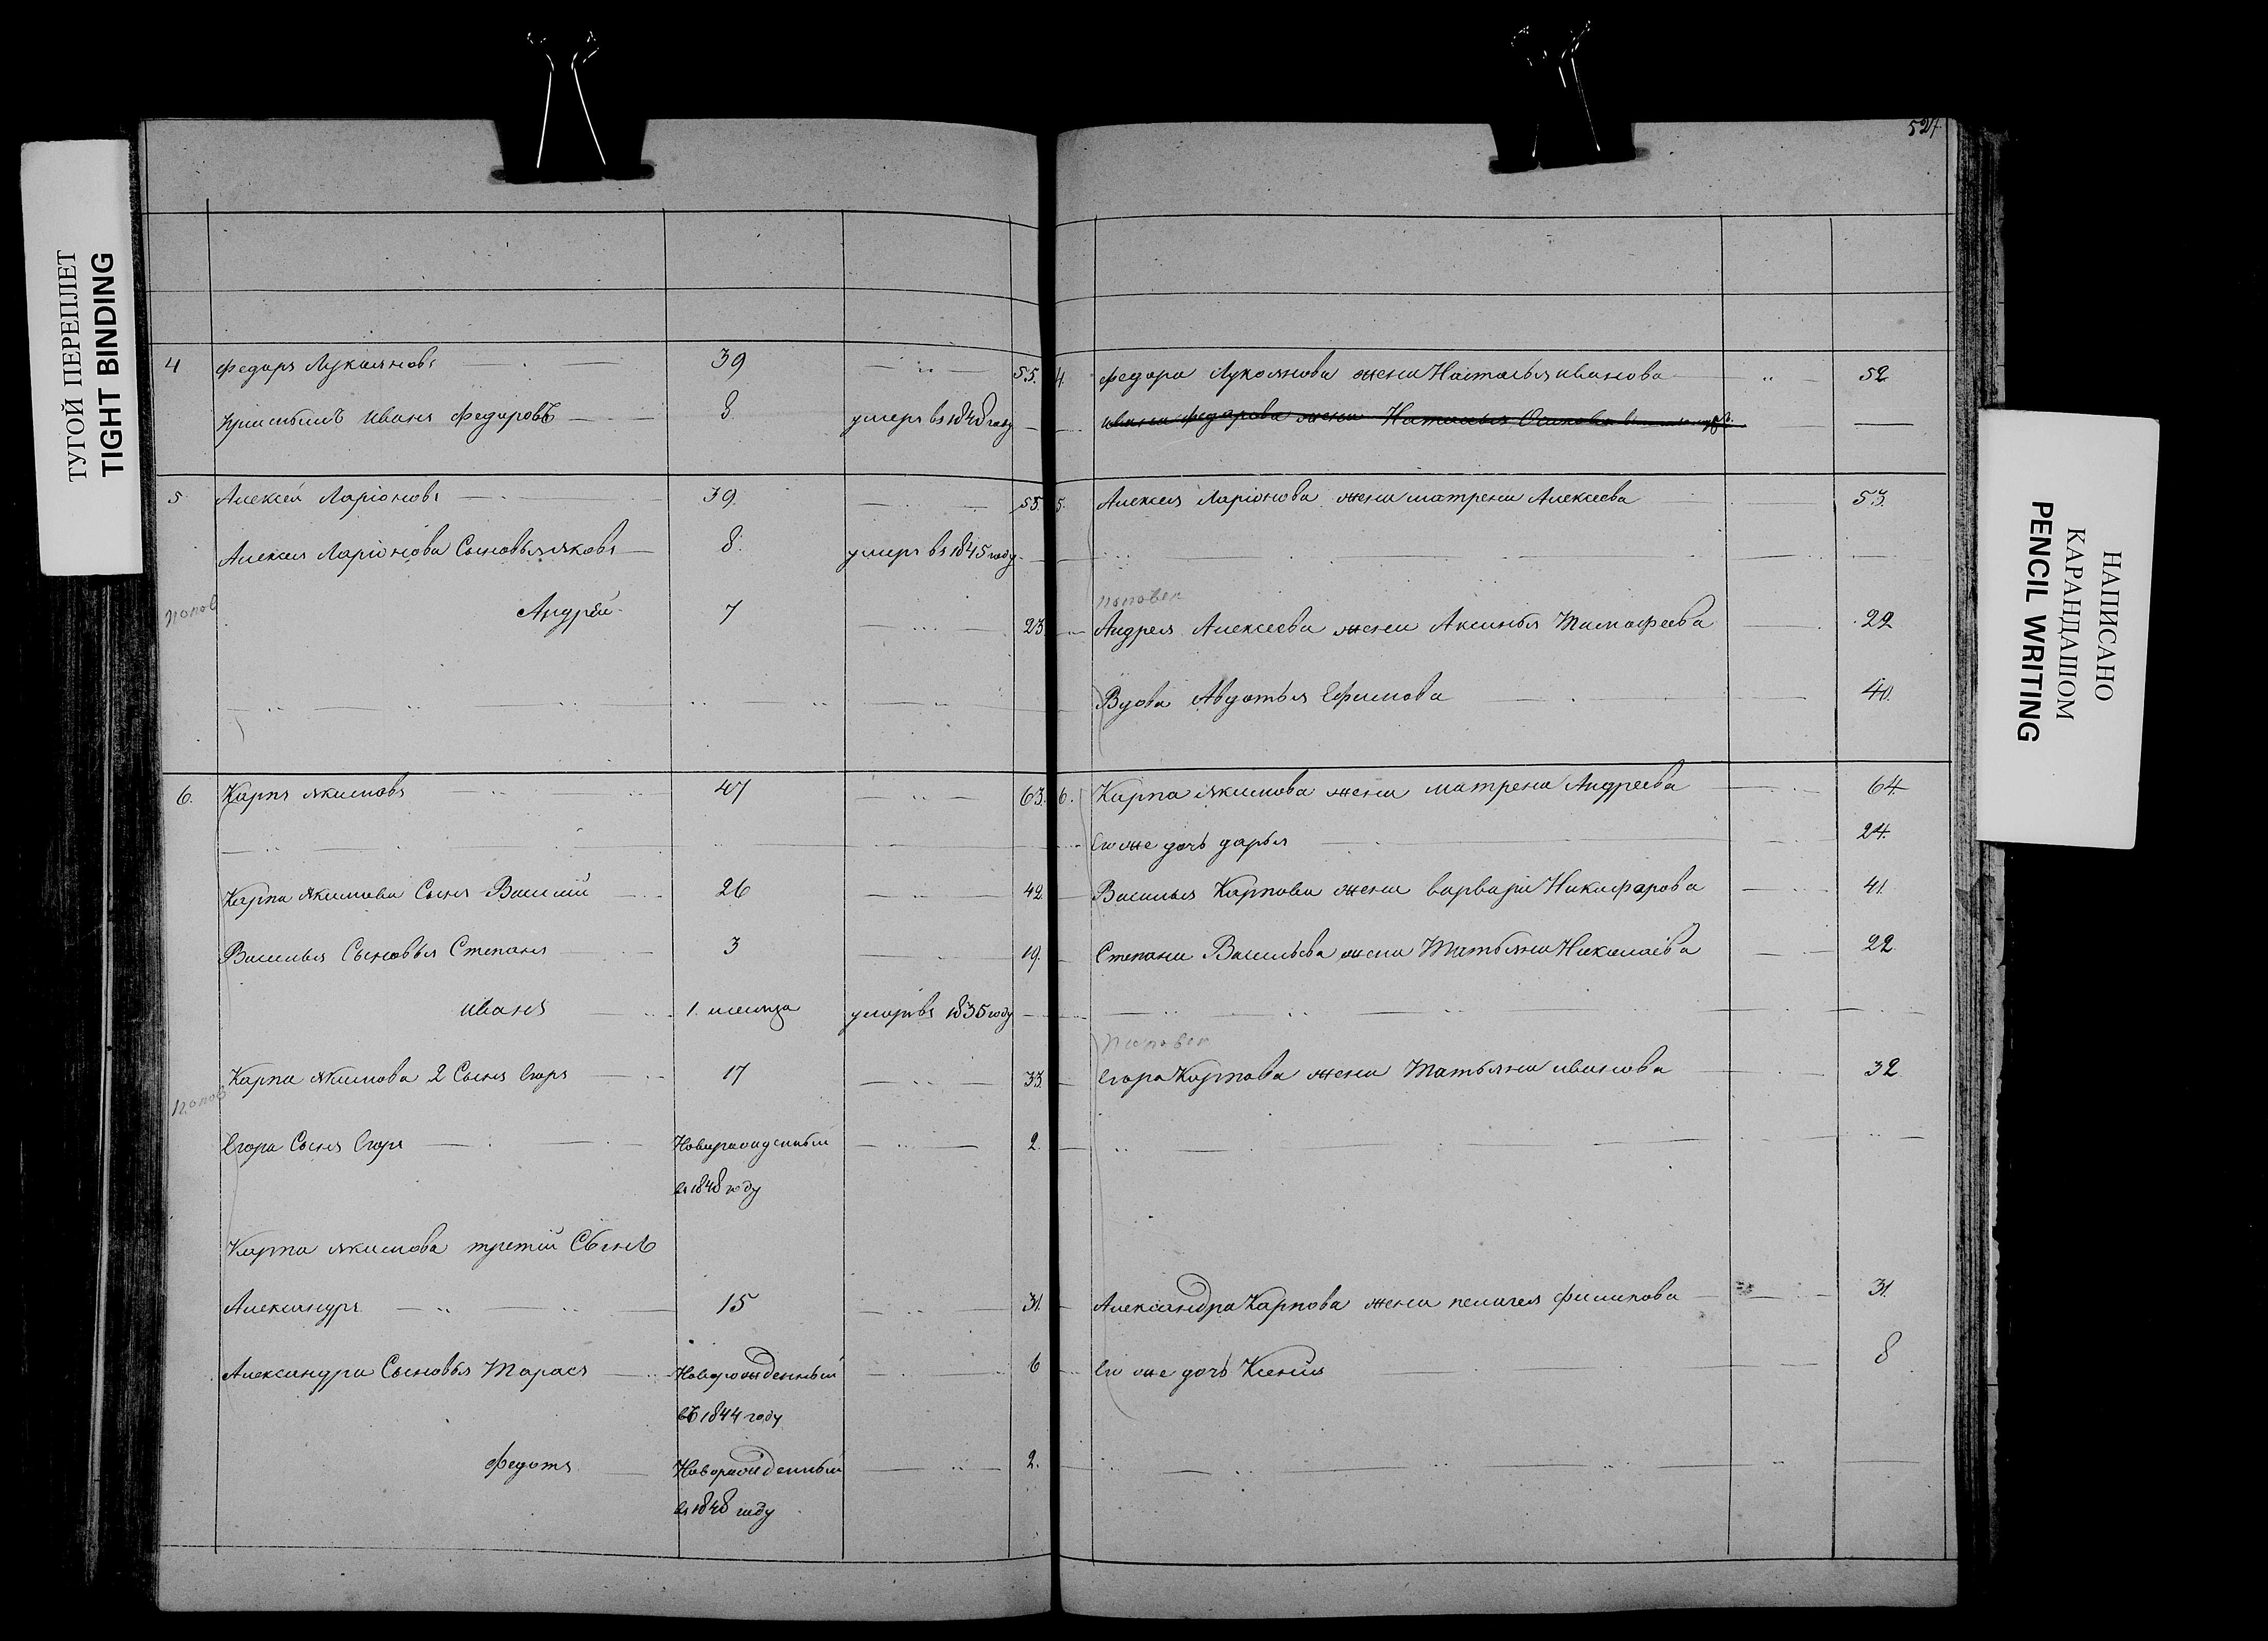 527
ТУГОЙ ПЕРЕПЛЕТ
TIGHT BINDING
4 Федоръ Лукояновъ 39 55.
Иванъ Федоровъ 8 умеръ въ 1848 году
5 Алексей Ларіоновъ 39. 55.
Алексея Ларіонова Сыновья яковъ 8. умеръ въ 1845 году
попов
Андрей 7 23
6. Карпъ якимовъ 47 63.
Карпа якимова Сынъ Василий 26 42.
Василья Сыновья Степанъ 3 19.
иванъ 1. месяца умеръ въ 1835 году
Карпа якимова 2 Сынъ Егоръ 17 33
попов
Егора Сынъ Егоръ Новорожденный 2.
въ 1848 году
Карпа якимова третий Сынъ
Александръ 15 31.
Александра Сыновья Тарасъ Новорожденный 6
въ 1844 году
Федотъ Новорожденный 2.
въ 1848 году
4. Федора Лукоянова жена Наталья иванова 52
ивана федорова жена Наталья Осипова
5. Алексея Ларіонова жена матрена Алексеева 53.
поповы
Андрея Алексеева жена Аксинья Тимофеева 22
Вдова Авдотья Ефимова 40.
6. Карпа якимова жена матрена Андреева 64
Его же дочь дарья 24.
Василья Карпова жена варвара Никифорова 41.
Степана Васильева жена Татьяна Николаева 22.
поповы
Егора Карпова жена Татьяна иванова 32
Александра Карпова жена пелагея филипова 31.
Его же дочь Ксения 8
НАПИСАНО
КАРАНДАШОМ
PENCIL WRITING